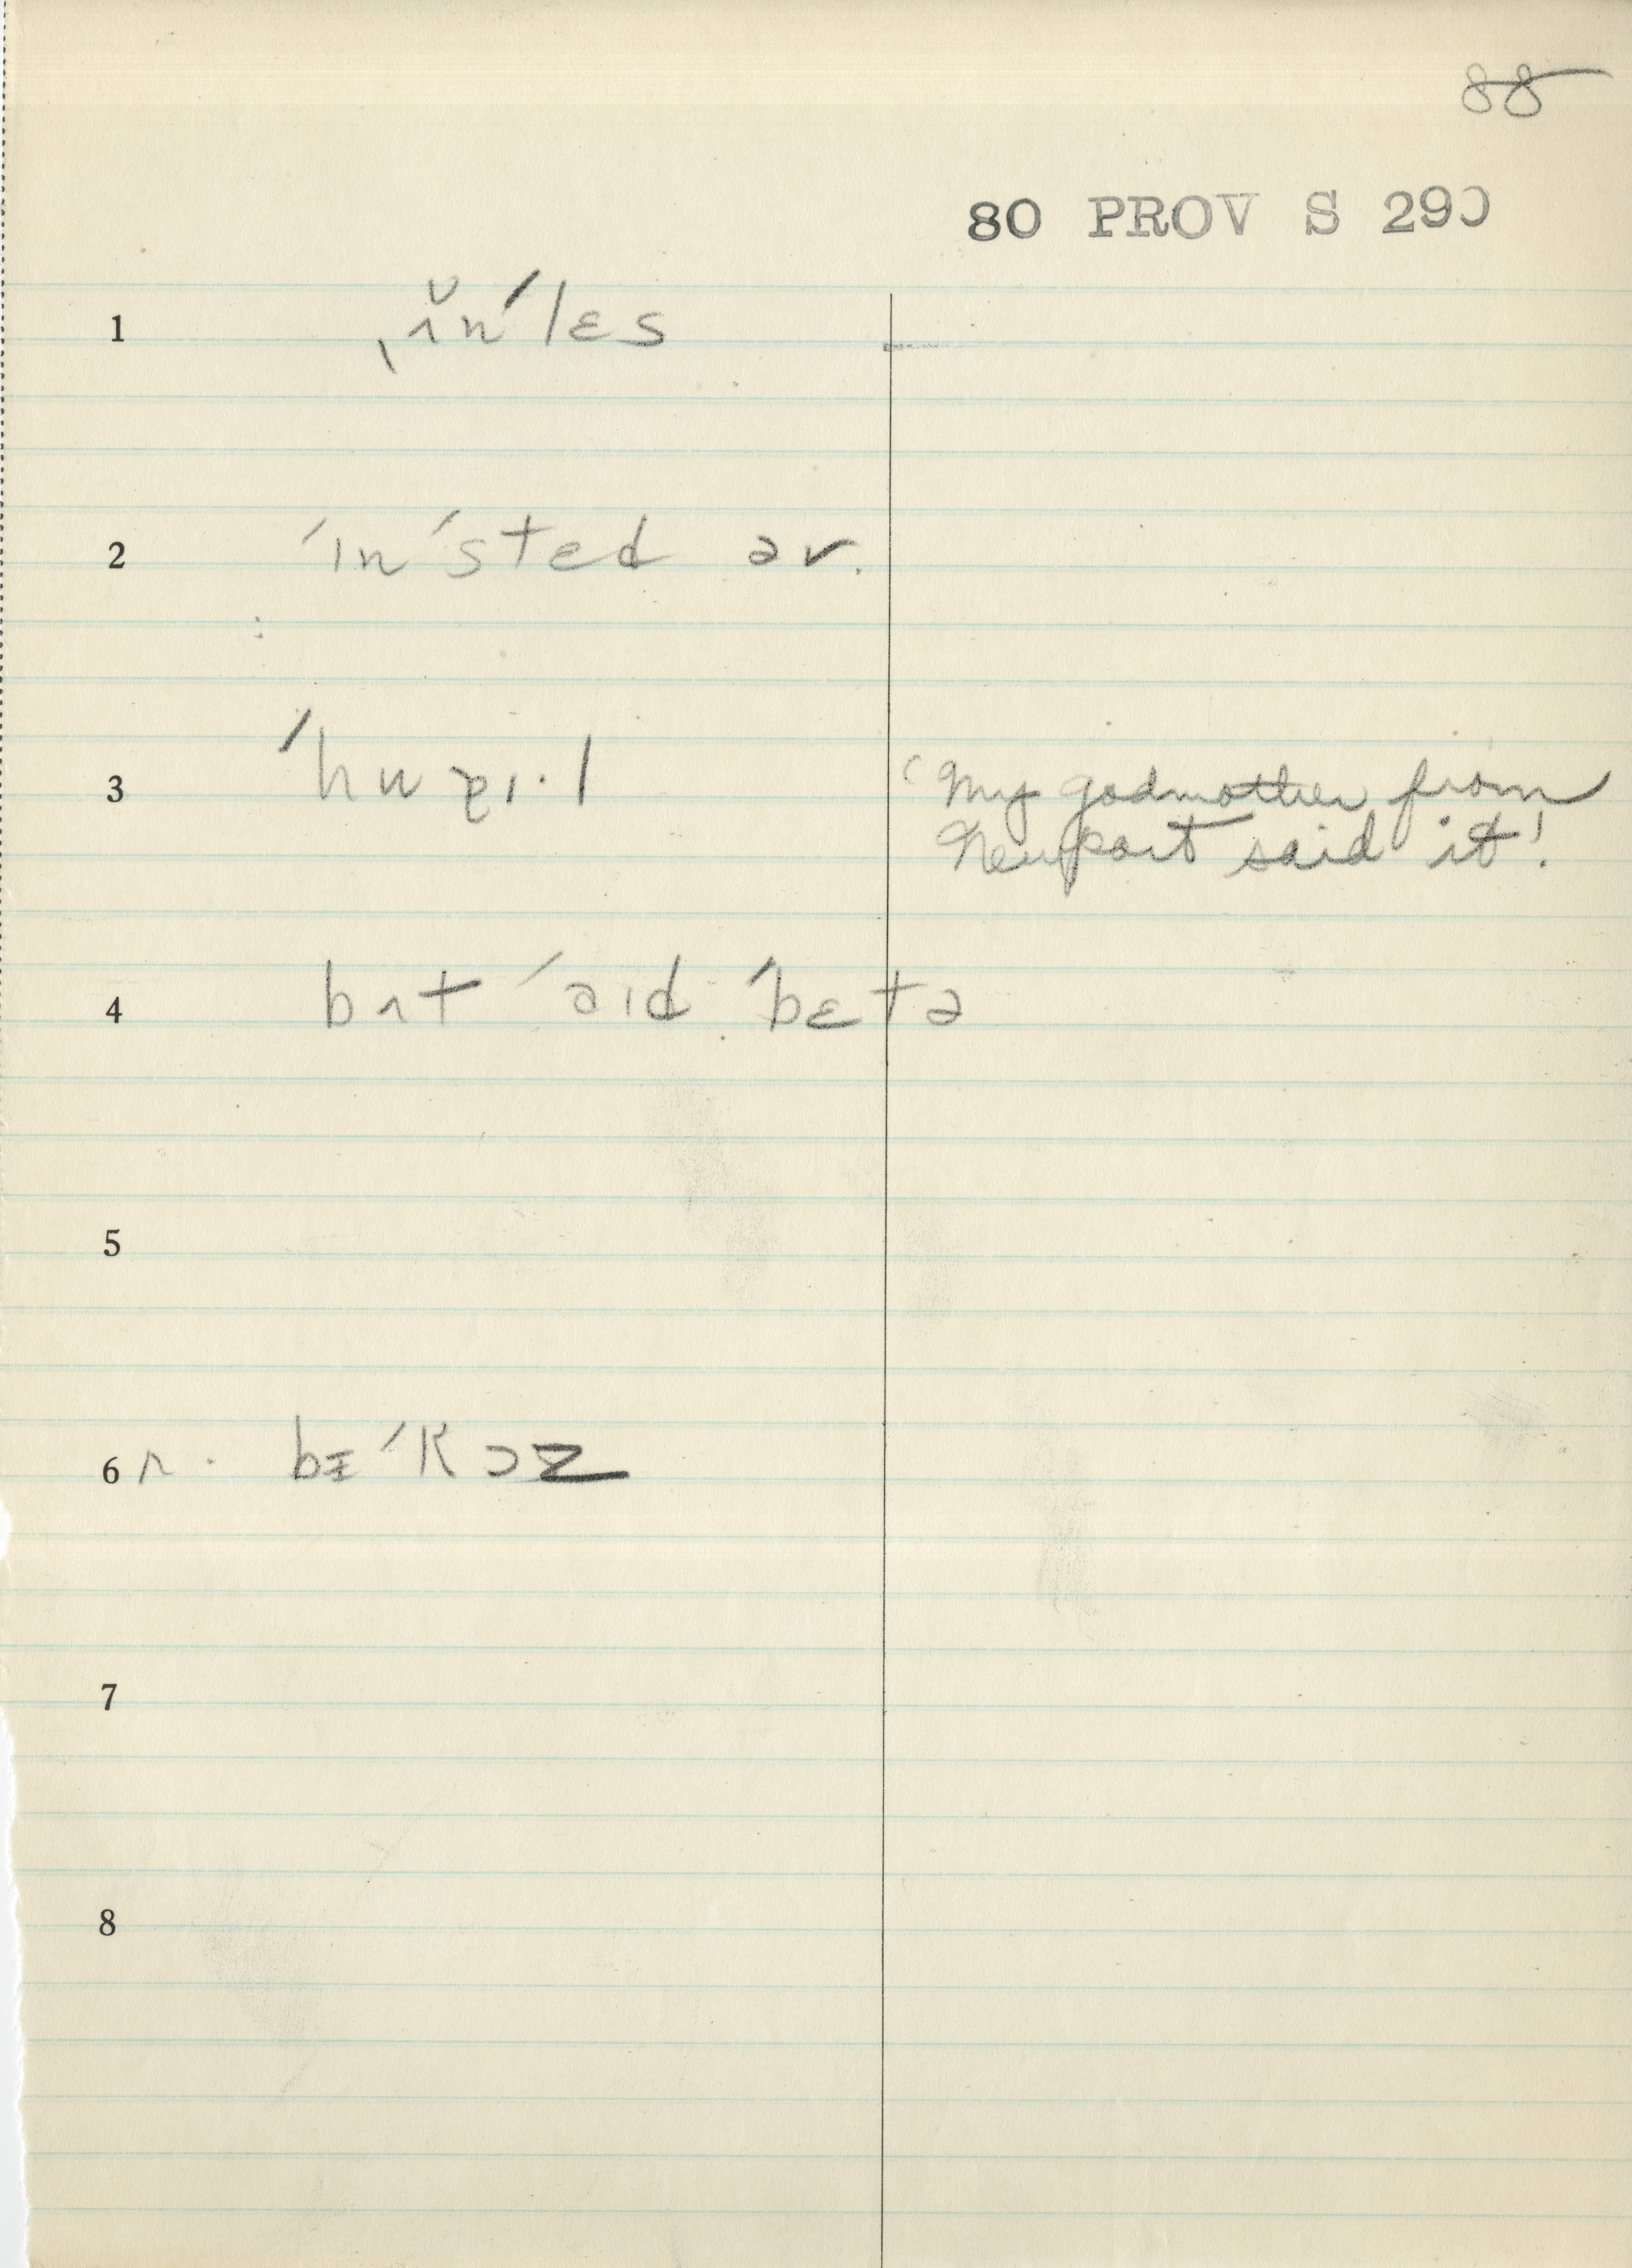 88
80 PROV S 290
1 ˌʌ̆nˈlɛs
2 ˈɪnˈsted əv.
3 ˈhu
(My godmother from
Newport said it!
4 bʌt ˈaɪd ˈbɛtə
5
6 r. bɪˈkɔz
7
8